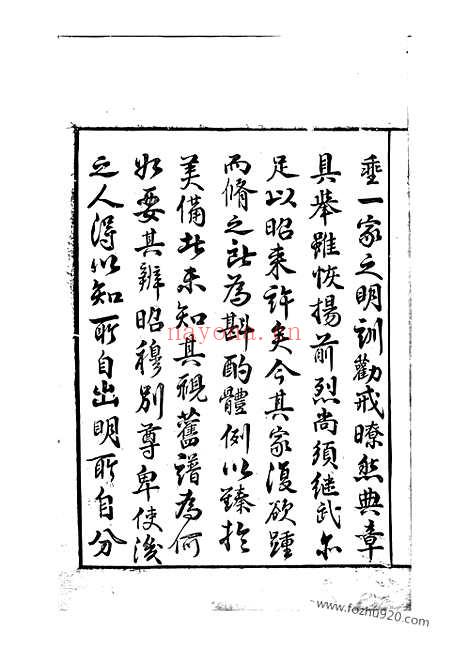 垂一家之明訓勸戒瞭然典章
具舉雖恢揚前烈尚須继武亦
足以昭来許矣今其家復欲踵
而脩之為斟酌體例以臻扵
美備此未知其視舊譜為何
如要其辨昭穆別尊卑使後
之人得以知所自出明所自分
nayona.cn
www.fozhu920.com